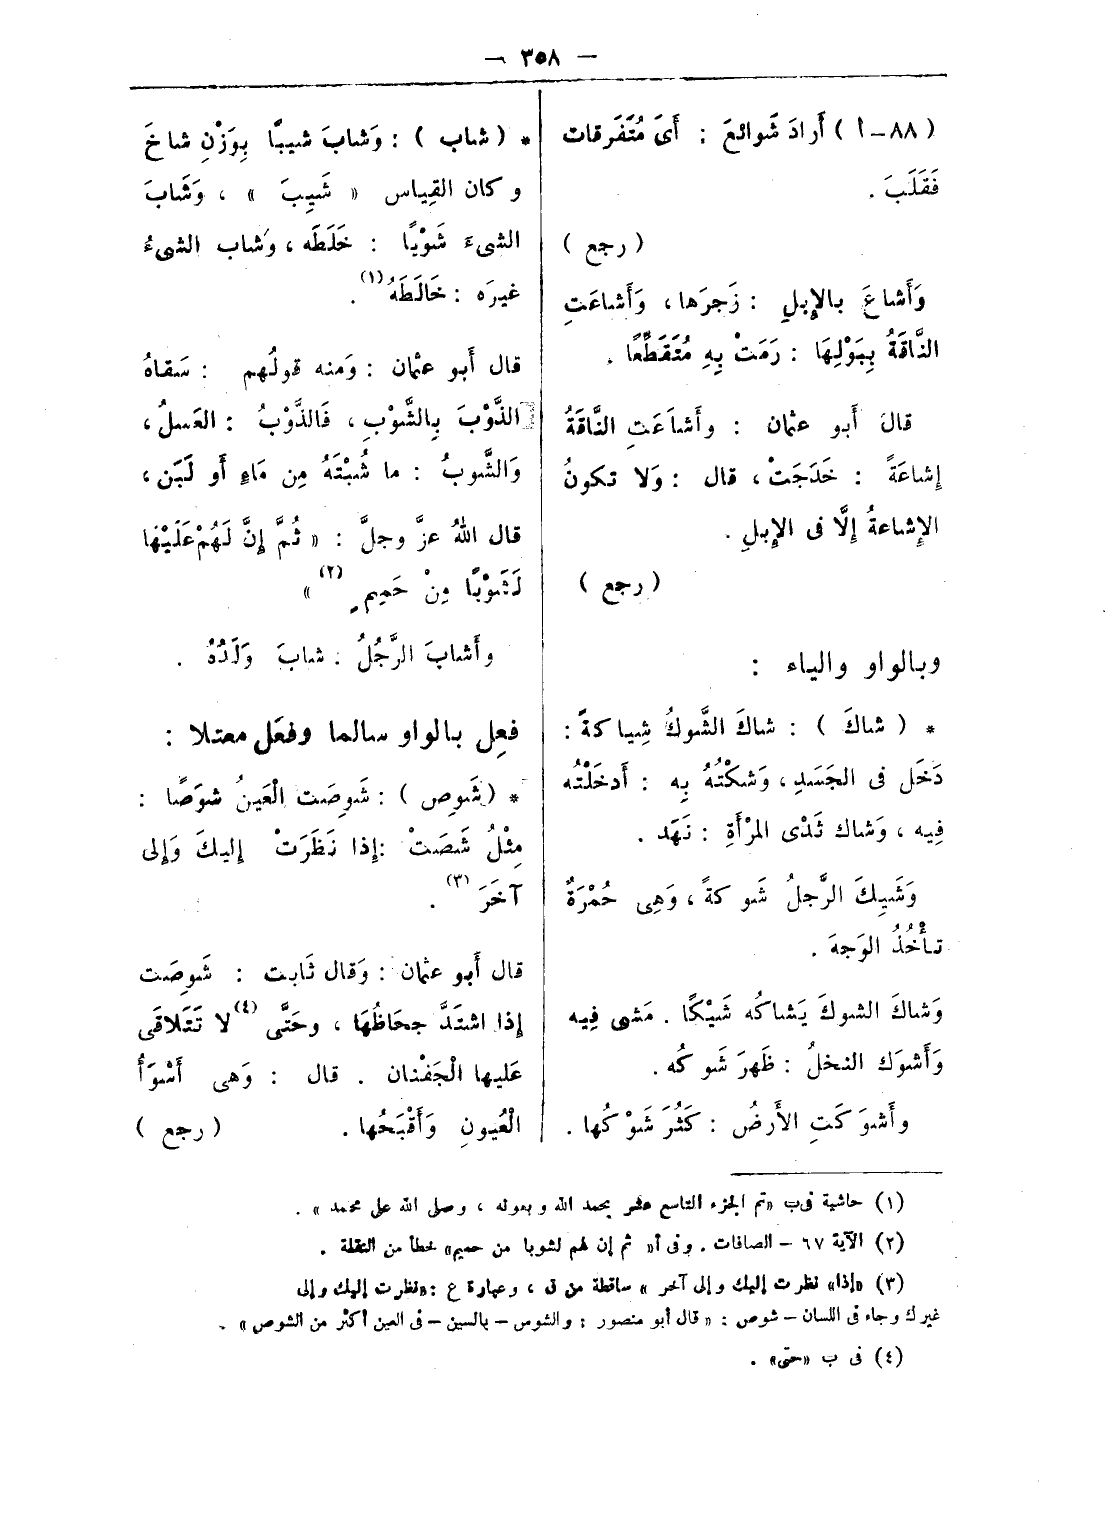 — ٣٥٨ —
( ٨٨ – أ ) أَرادَ شَوائعَ : أَىَ مُتَفَرقات
فَقَلَبَ .
( رجع )
وَأَشاعَ بالإِبلِ : زَجرَها ، وَأَشاعَتِ
النَّاقَةُ بِبَوْلِهَا : رَمَتْ بِهِ مُتَقَطِّعًا .
قالَ أَبو عثمان : وأَشاعَتِ النَّاقَةُ
إِشاعَةً : خَدَجَتْ ، قال : وَلا تكونُ
الإِشاعةُ إِلَّا فى الإِبلِ .
( رجع )
وبالواو والياء :
* ( شاكَ ) : شاكَ الشَّوكُ شِياكةً :
دَخَل فى الجَسَدِ ، وَشكْتُهُ بِه : أَدخَلْتُه
فِيه ، وَشاك ثَدْى المرْأَةِ : نَهَد .
وَشَيِكَ الرَّجلُ شَوكةً ، وَهِى حُمْرَةٌ
تأْخُذُ الوَجهَ .
وَشاكَ الشوكَ يَشاكُه شَيْكًا . مَشى فِيه
وَأَشوَك النخلُ : ظَهرَ شَوكُه .
وأَشوَكَتِ الأَرضُ : كَثُرَ شَوْكُها .
* ( شاب ) : وَشابَ شيبًا بِوَزْنِ شاخَ
وكان القِياس « شَيِبَ » ، وَشَابَ
الشىءَ شَوْبًا : خَلَطَه ، وَشاب الشىءُ
غيرَه : خَالَطَهُ (١) .
قال أَبو عثمان : وَمنه قولُهم : سَقاهُ
الذَّوْبَ بِالشَّوْبِ ، فَالذَّوْبُ : العَسلُ ،
وَالشَّوبُ : ما شُبْتَهُ مِن مَاءٍ أَو لَبَن ،
قال اللهُ عزَّ وجلَّ : « ثُمَّ إِنَّ لَهُمْ عَلَيْهَا
لَشَوْبًا مِنْ حَمِيمٍ (٢) »
وأَشابَ الرَّجُلُ : شابَ وَلَدُهُ .
فعِل بالواو سالما وفعَل معتلا :
* (شَوِص ) : شَوِصَت الْعَينُ شوَصًا :
مِثْلُ شَصَتْ : إِذا نَظَرَتْ إِليكَ وَإِلى
آخَرَ (٣) .
قال أَبو عثمان : وَقال ثَابت : شَوِصَت
إِذا اشتَدَّ جحَاظُهَا ، وحَتَّى (٤) لا تَتَلاقَى
عَليها الْجَفْنان . قال : وَهى أَسْوَأُ
الْعُيونِ وَأَقْبَحُها . ( رجع )
(١) حاشية فى ب «تم الجزء التاسع عشر بحمد الله وبعونه ، وصلى الله على محمد » .
(٢) الآية ٦٧ – الصافات . وفى أ« ثم إن لهم لشوبا من حميم» خطأ من النقلة .
(٣) «إذا» نظرت إليك وإلى آخر » ساقطة من ق ، وعبارة ع : «نظرت إليك وإلى
غيرك وجاء فى اللسان – شوص : « قال أبو منصور : والشوس – بالسين – فى العين أكثر من الشوص » .
(٤) فى ب «حتى» .